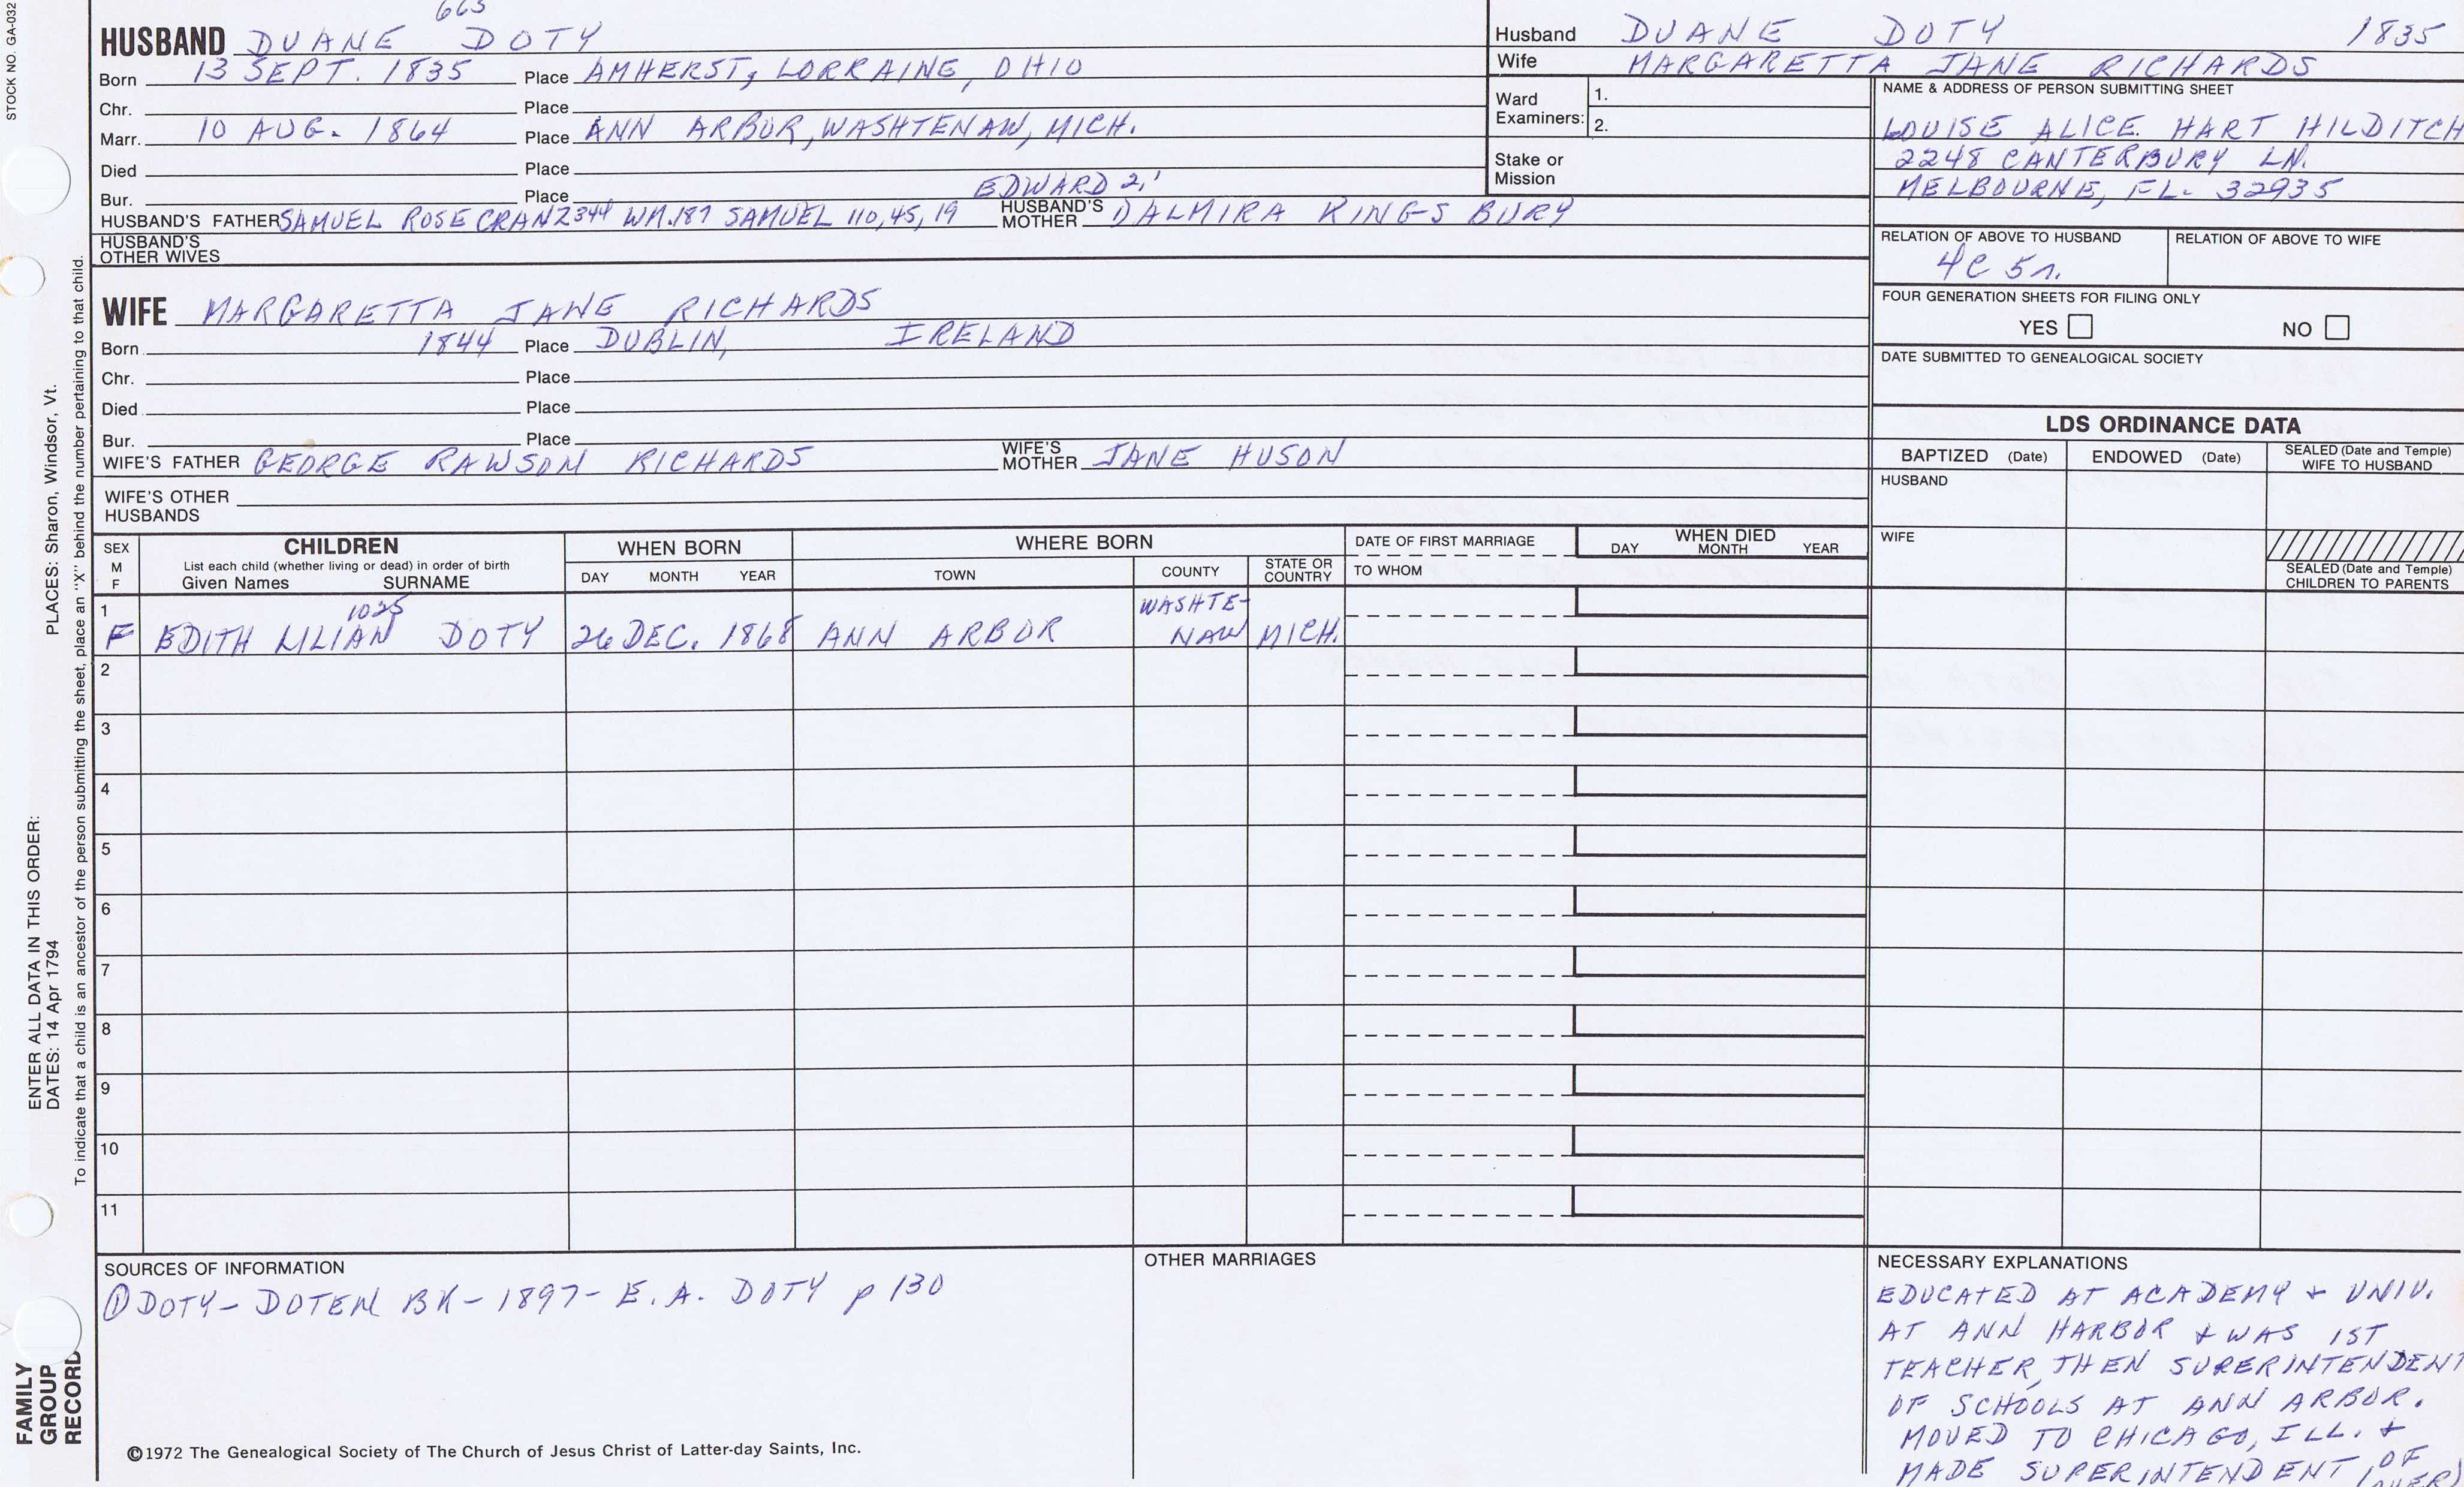 STOCK NO. GA-032
PLACES: Sharon, Windsor, Vt.
ENTER ALL DATA IN THIS ORDER:
DATES: 14 Apr 1794
To indicate that a child is an ancestor of the person submitting the sheet, place an "X" behind the number pertaining to that child.
FAMILY
GROUP
RECORD
663
HUSBAND DUANE DOTY
Born 13 SEPT. 1835 Place AMHERST, LORRAINE, OHIO
Chr. Place
Marr. 10 AUG. 1864 Place ANN ARBOR, WASHTENAW, MICH.
Died Place
Bur. Place EDWARD 2,1
HUSBAND'S FATHER SAMUEL ROSECRANZ 344 WM. 187 SAMUEL 110, 45, 19 HUSBAND'S MOTHER DALMIRA KINGSBURY
HUSBAND'S OTHER WIVES
Husband DUANE DOTY 1835
Wife MARGARETTA JANE RICHARDS
Ward Examiners: 1.
2.
Stake or Mission
NAME & ADDRESS OF PERSON SUBMITTING SHEET
LOUISE ALICE HART HILDITCH
2248 CANTERBURY LN.
MELBOURNE, FL. 32935
RELATION OF ABOVE TO HUSBAND RELATION OF ABOVE TO WIFE
4C 5r.
FOUR GENERATION SHEETS FOR FILING ONLY
YES NO
DATE SUBMITTED TO GENEALOGICAL SOCIETY
WIFE MARGARETTA JANE RICHARDS
Born 1844 Place DUBLIN, IRELAND
Chr. Place
Died Place
Bur. Place
WIFE'S FATHER GEORGE RAWSON RICHARDS WIFE'S MOTHER JANE HUSON
WIFE'S OTHER HUSBANDS
LDS ORDINANCE DATA
BAPTIZED (Date) ENDOWED (Date) SEALED (Date and Temple) WIFE TO HUSBAND
HUSBAND
WIFE
SEALED (Date and Temple) CHILDREN TO PARENTS
SEX M F
CHILDREN
List each child (whether living or dead) in order of birth
Given Names SURNAME
WHEN BORN
DAY MONTH YEAR
WHERE BORN
TOWN COUNTY STATE OR COUNTRY
DATE OF FIRST MARRIAGE
TO WHOM
WHEN DIED
DAY MONTH YEAR
1 1025 WASHTE-
F EDITH LILIAN DOTY 26 DEC. 1868 ANN ARBOR NAW MICH.
2
3
4
5
6
7
8
9
10
11
SOURCES OF INFORMATION
① DOTY- DOTEN BK- 1897- E.A. DOTY p 130
©1972 The Genealogical Society of The Church of Jesus Christ of Latter-day Saints, Inc.
OTHER MARRIAGES
NECESSARY EXPLANATIONS
EDUCATED AT ACADEMY & UNIV.
AT ANN HARBOR & WAS 1ST
TEACHER, THEN SUPERINTENDENT
OF SCHOOLS AT ANN ARBOR.
MOVED TO CHICAGO, ILL. &
MADE SUPERINTENDENT OF
(OVER)